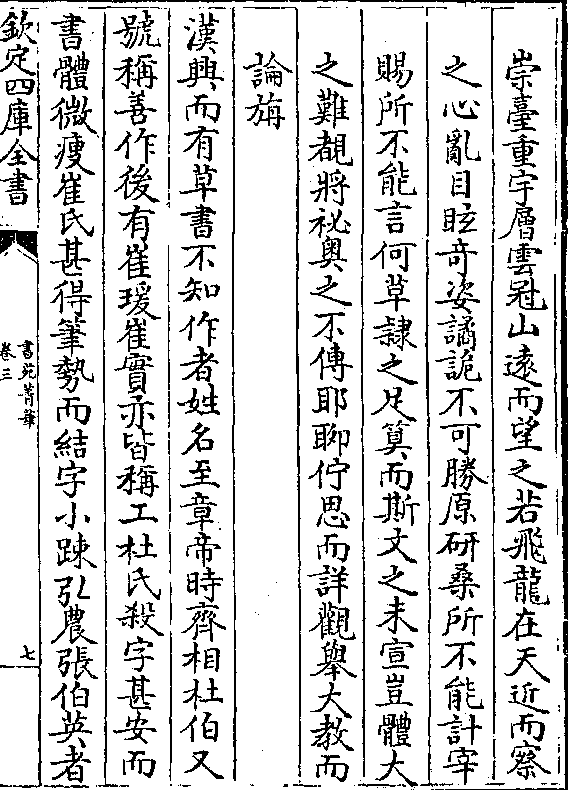 崇臺重宇層雲冠山遠而望之若飛龍在天近而察
之心亂目眩奇姿譎詭不可勝原研桑所不能計宰
賜所不能言何草隸之足筭而斯文之未宣豈體大
之難覩將祕奧之不傳耶聊佇思而詳觀舉大教而
論旃
漢興而有草書不知作者姓名至章帝時齊相杜伯又
號稱善作後有崔瑗崔寔亦皆稱工杜氏殺字甚安而
書體微瘦崔氏甚得筆勢而結字小踈弘農張伯英者
欽定四庫全書
書苑菁華
卷三
七